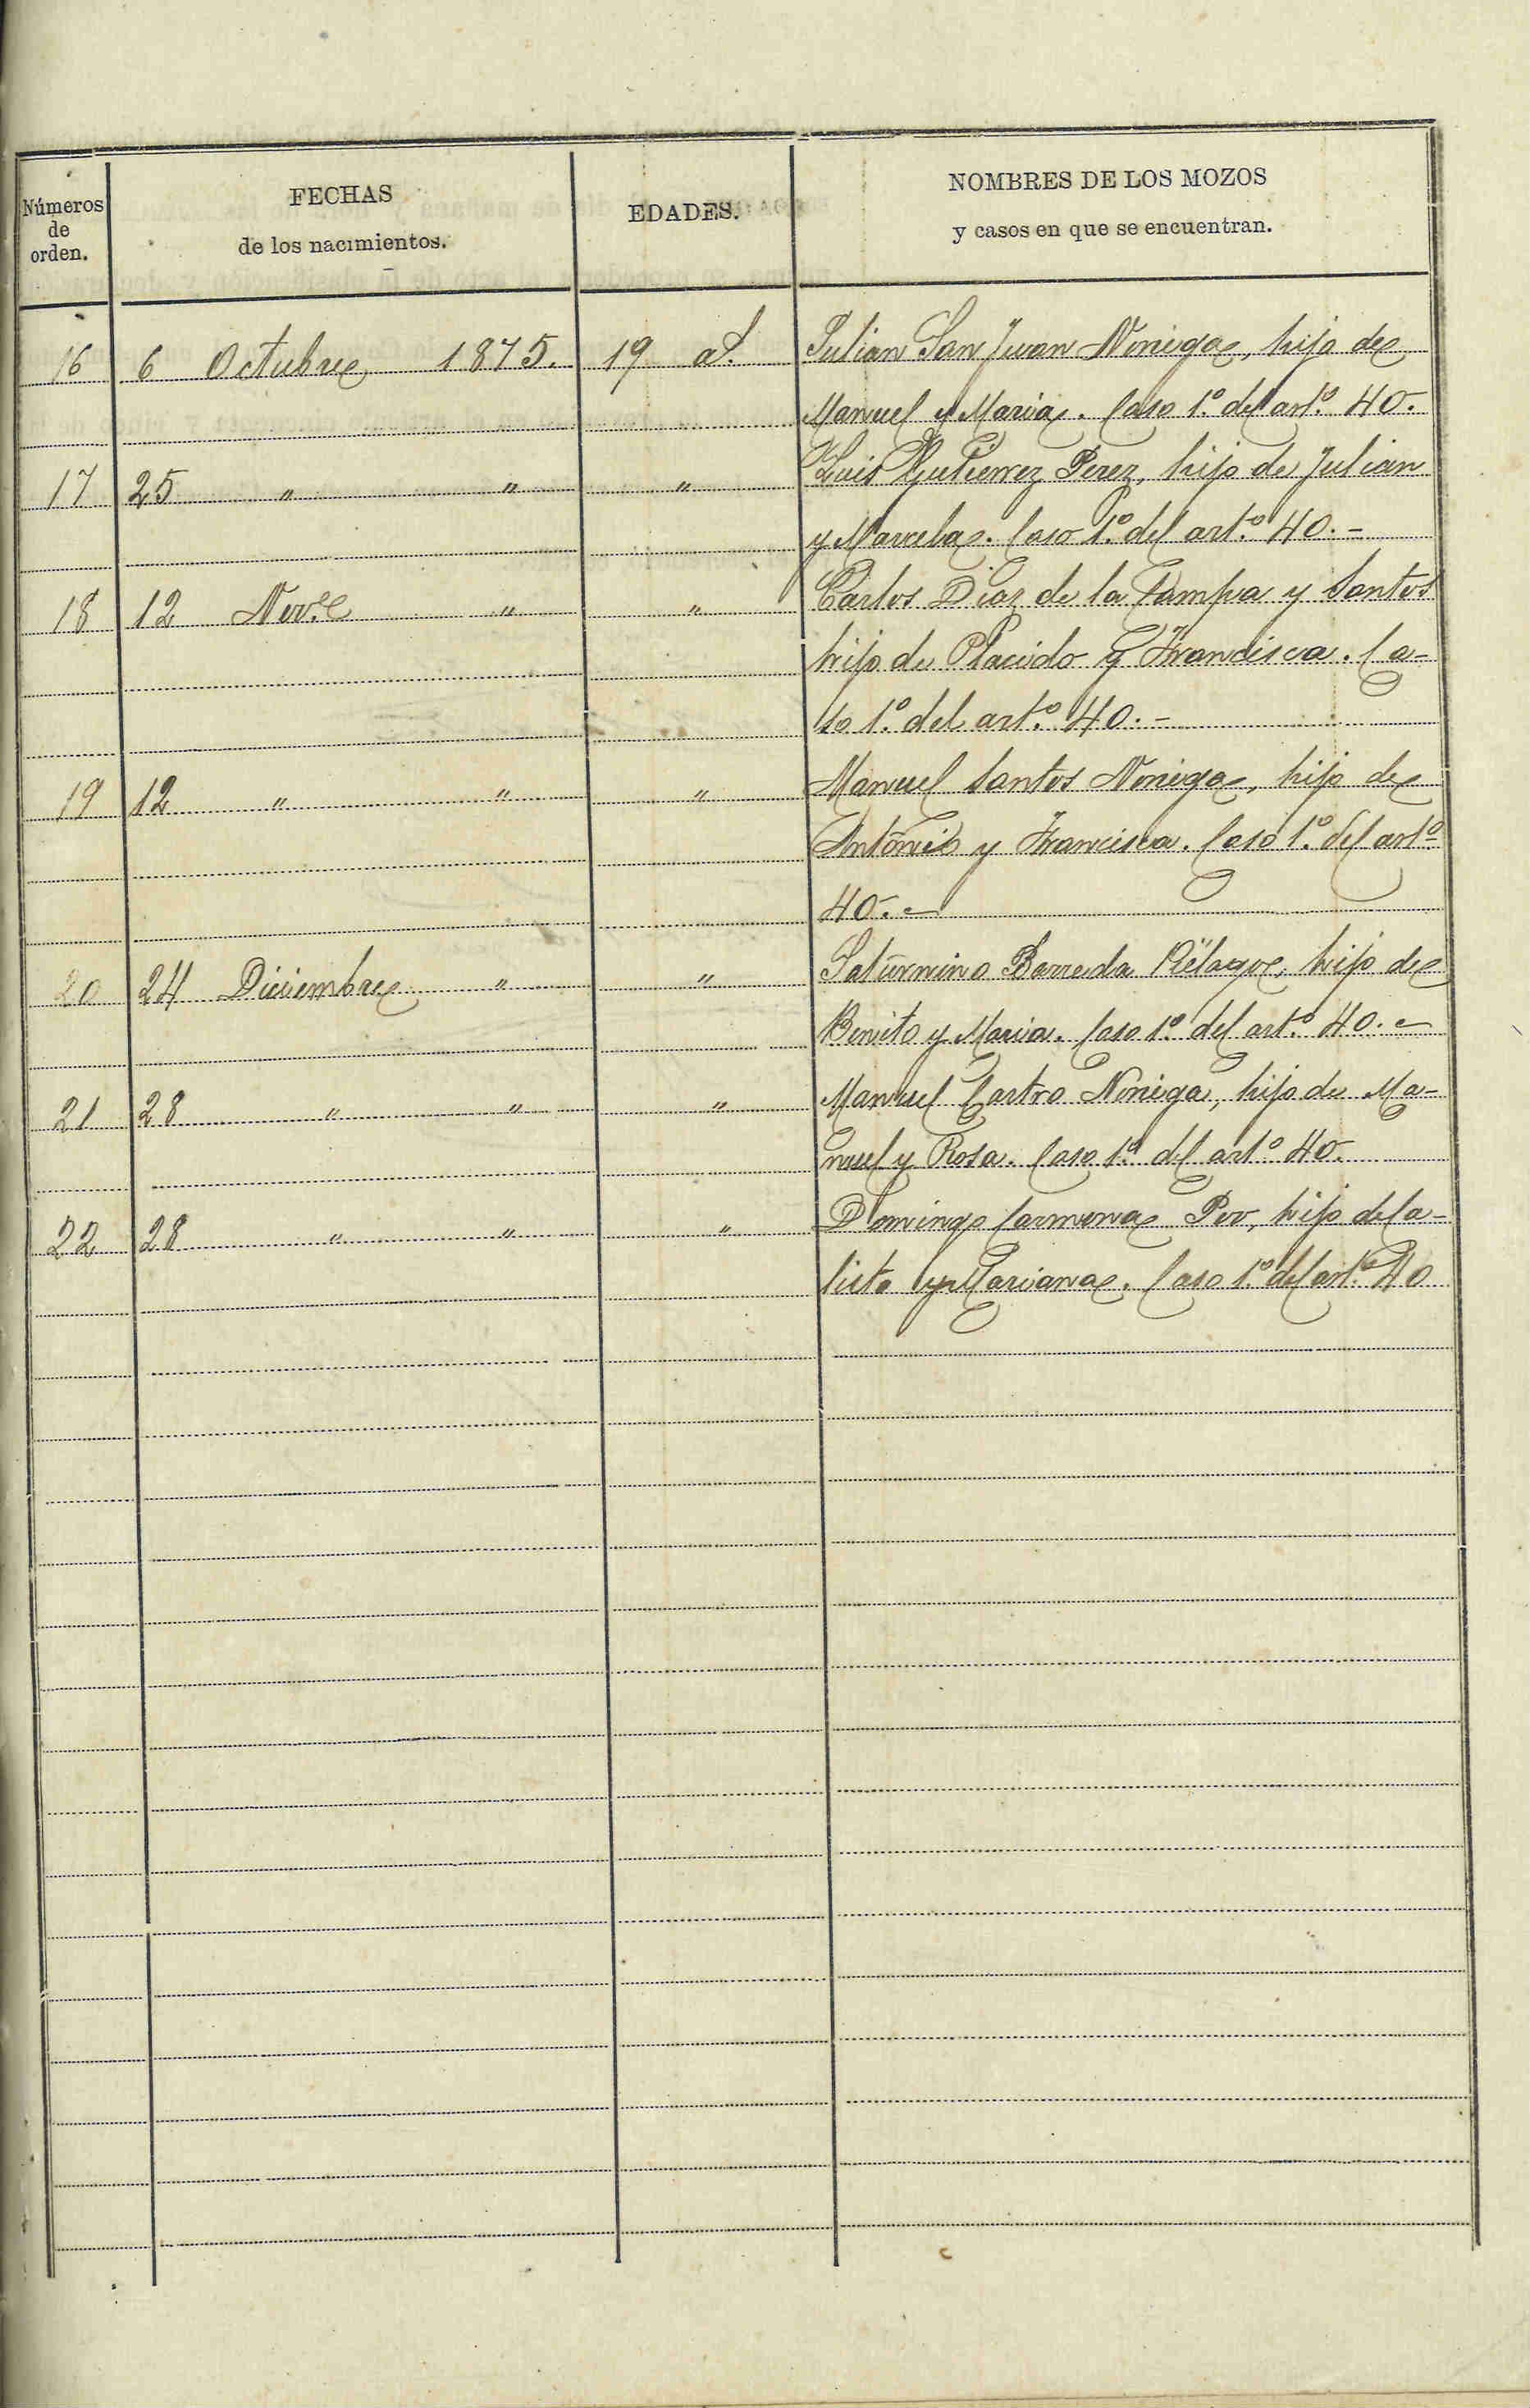 Números
de
orden.
FECHAS
de los nacimientos.
EDADES.
NOMBRES DE LOS MOZOS
y casos en que se encuentran.
16 6 Octubre 1875. 19 a.s. Julian San Juan Noriega, hijo de
Manuel y Maria. Caso 1.º del art.º 40.
17 25 " " " Luis Gutierrez Perez, hijo de Julian
y Marcela. Caso 1.º del art.º 40.-
18 12 Nov.e " " Carlos Diaz de la Campa y Santos
hijo de Placido y Francisca. Ca-
so 1.º del art.º 40.-
19 12 " " " Manuel Santos Noriega, hijo de
Antonio y Francisca. Caso 1.º del art.º
40.-
20 24 Diciembre " " Saturnino Barreda hijo de
Benito y Maria. Caso 1.º del art.º 40.-
21 28 " " " Manuel Castro Noriega, hijo de Ma-
nuel y Rosa. Caso 1.º del art.º 40.
22 28 " " " Domingo Carmona hijo de Ca-
listo y Mariana. Caso 1.º del art.º 40